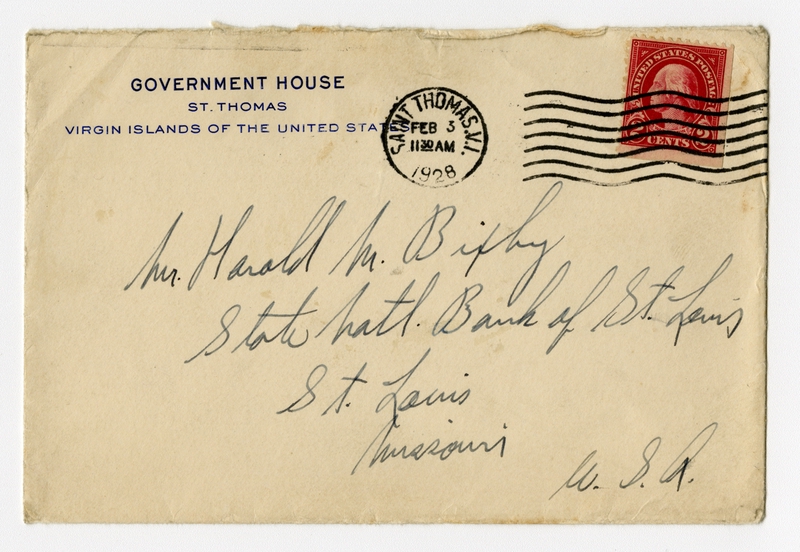 GOVERNMENT HOUSE
ST. THOMAS
VIRGIN ISLANDS OF THE UNITED STATES
SAINT THOMAS, V.I.
FEB 3
11 30 AM
1928
UNITED STATES POSTAGE
2 2
CENTS
Mr. Harold M. Bixby
State Natl. Bank of St. Louis
St. Louis
Missouri
U. S. A.